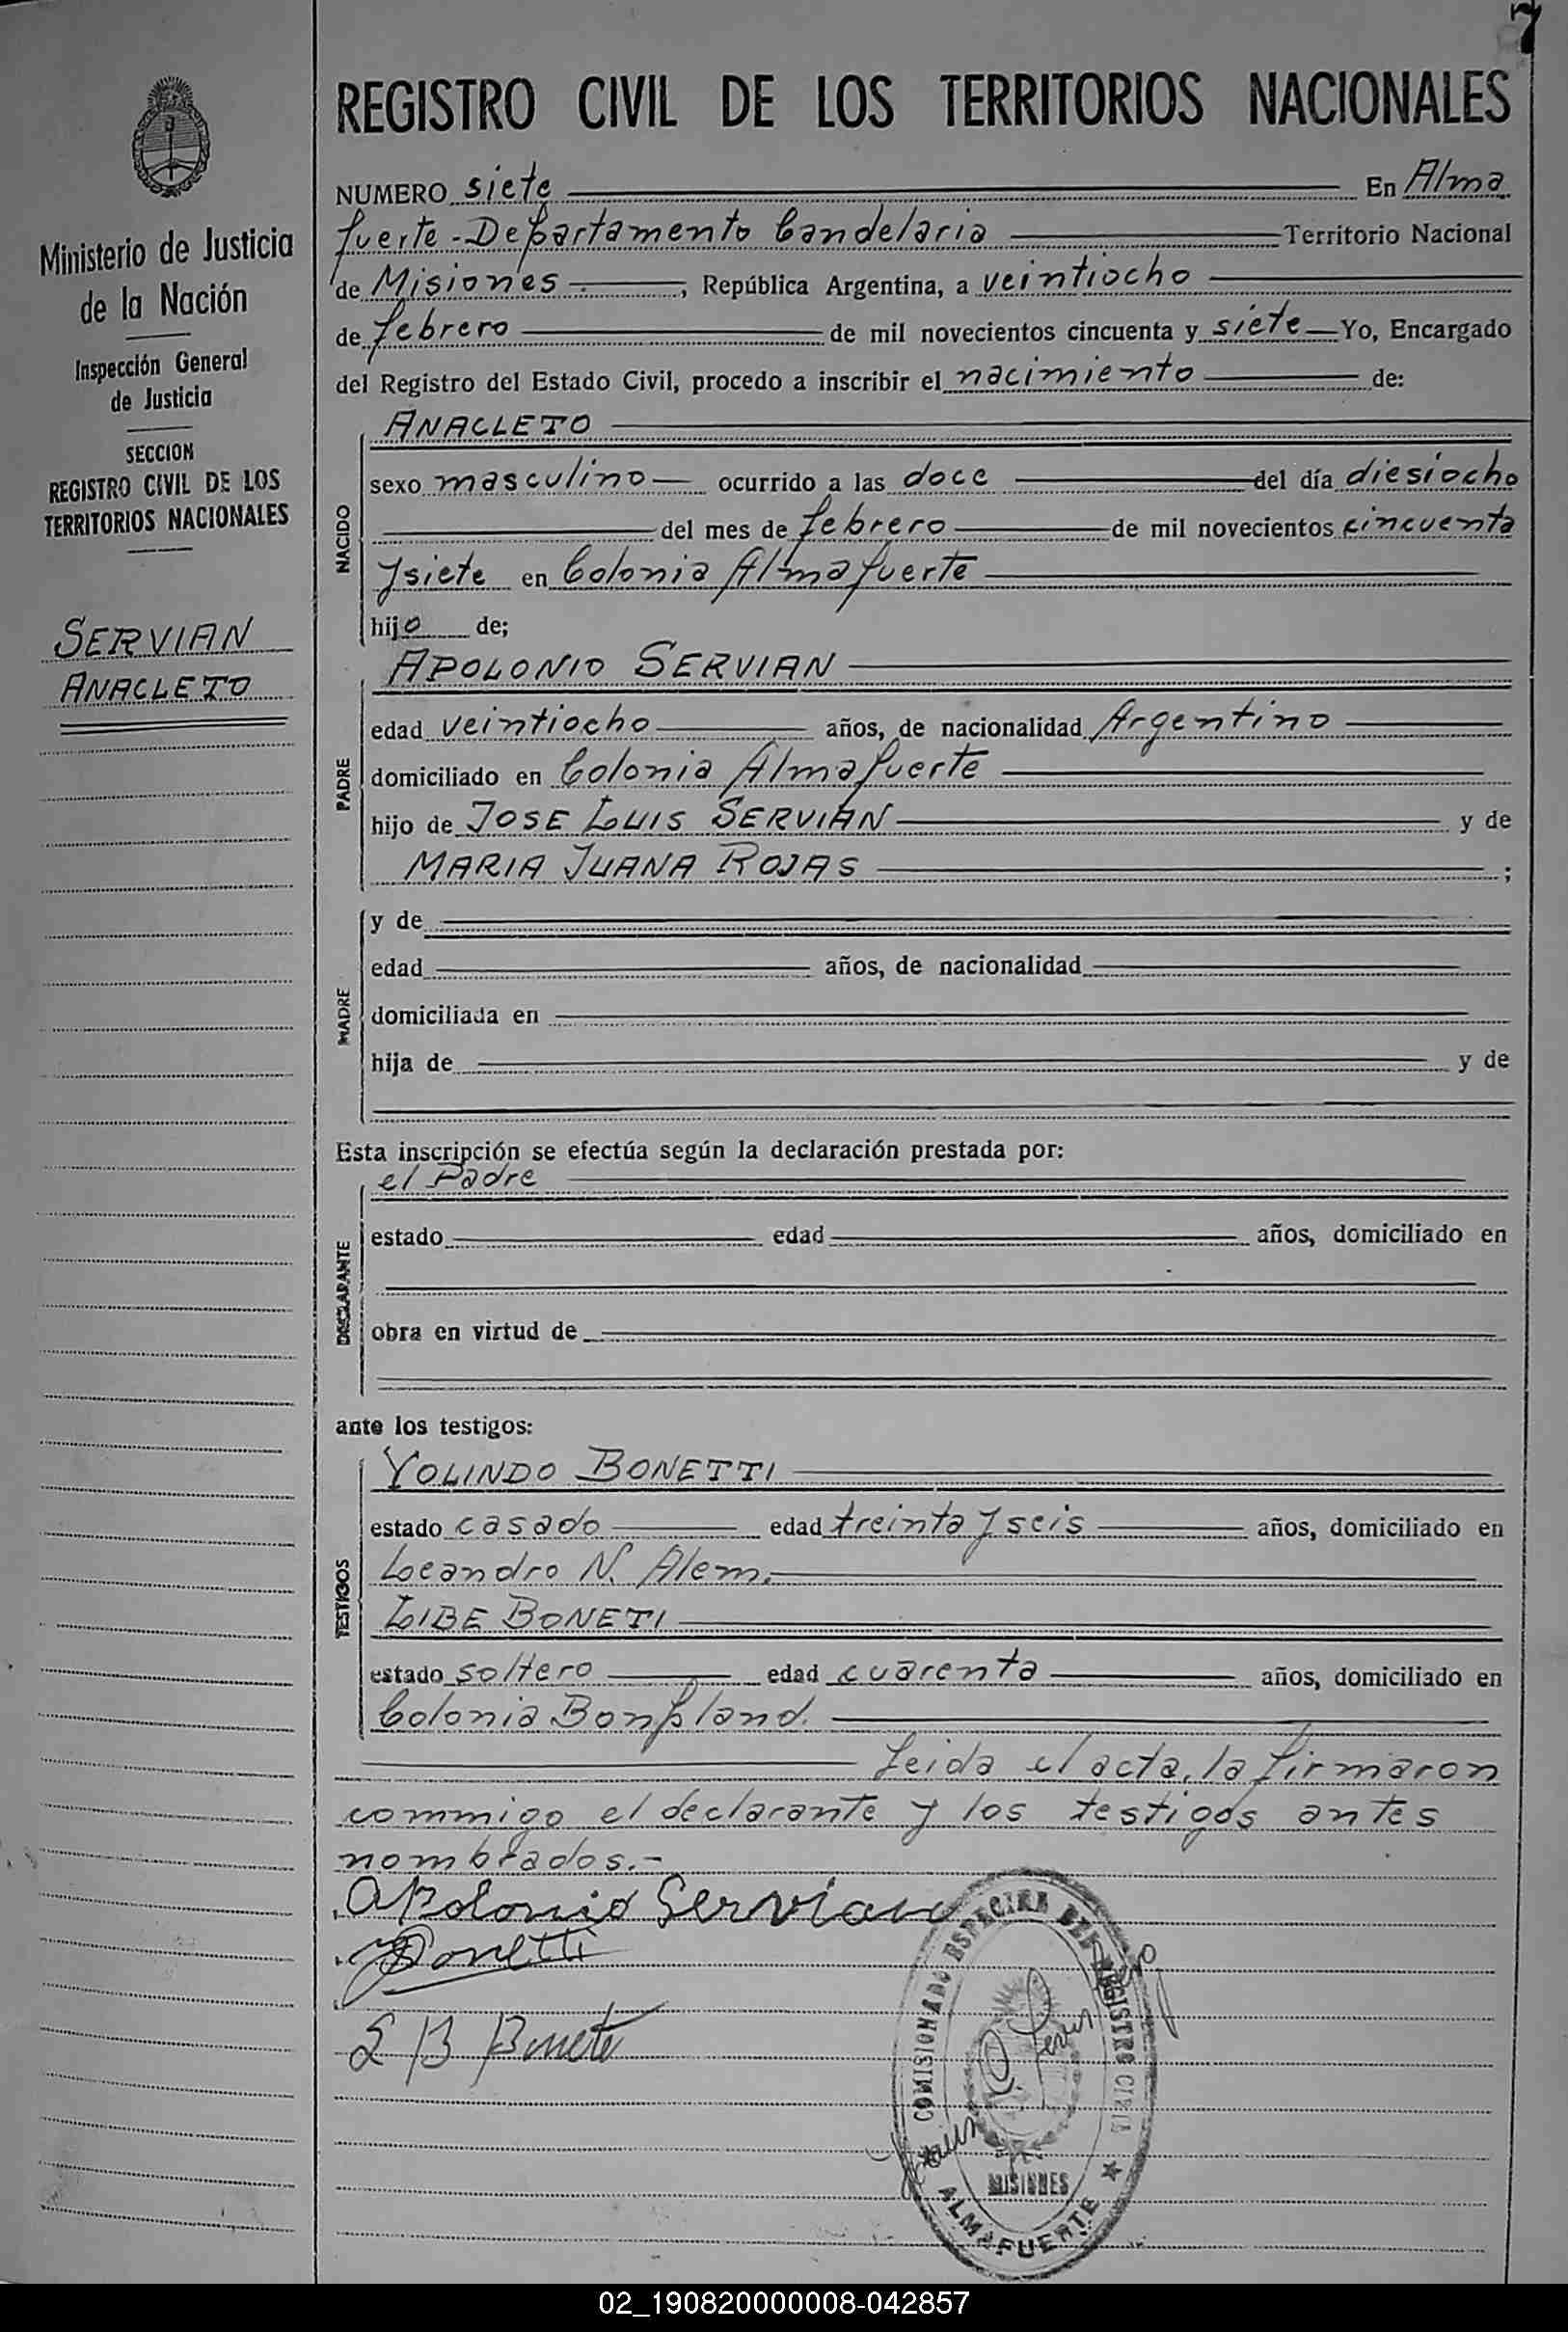 7
REGISTRO CIVIL DE LOS TERRITORIOS NACIONALES
Ministerio de Justicia
de la Nación
Inspección General
de Justicia
SECCION
REGISTRO CIVIL DE LOS
TERRITORIOS NACIONALES
SERVIAN
ANACLETO
NUMERO siete En Alma
fuerte - Departamento Candelaria Territorio Nacional
de Misiones, República Argentina, a veintiocho
de febrero de mil novecientos cincuenta y siete Yo, Encargado
del Registro del Estado Civil, procedo a inscribir el nacimiento de:
NACIDO
ANACLETO
sexo masculino ocurrido a las doce del día diesiocho
del mes de febrero de mil novecientos cincuenta
y siete en Colonia Almafuerte
hijo de;
PADRE
APOLONIO SERVIAN
edad veintiocho años, de nacionalidad Argentino
domiciliado en Colonia Almafuerte
hijo de JOSE LUIS SERVIAN y de
MARIA JUANA ROJAS ;
MADRE
y de
edad años, de nacionalidad
domiciliada en
hija de y de
Esta inscripción se efectúa según la declaración prestada por:
DECLARANTE
el Padre
estado edad años, domiciliado en
obra en virtud de
ante los testigos:
TESTIGOS
YOLINDO BONETTI
estado casado edad treinta y seis años, domiciliado en
Leandro N. Alem.
LIBE BONETI
estado soltero edad cuarenta años, domiciliado en
Colonia Bonpland.
Leida el acta, la firmaron
commigo el declarante y los testigos antes
nombrados.-
Apolonio Servian
Bonetti
L B Boneti
COMISIONADO ESPECIAL DEL REGISTRO CIVIL
MISIONES
ALMAFUERTE
02_190820000008-042857